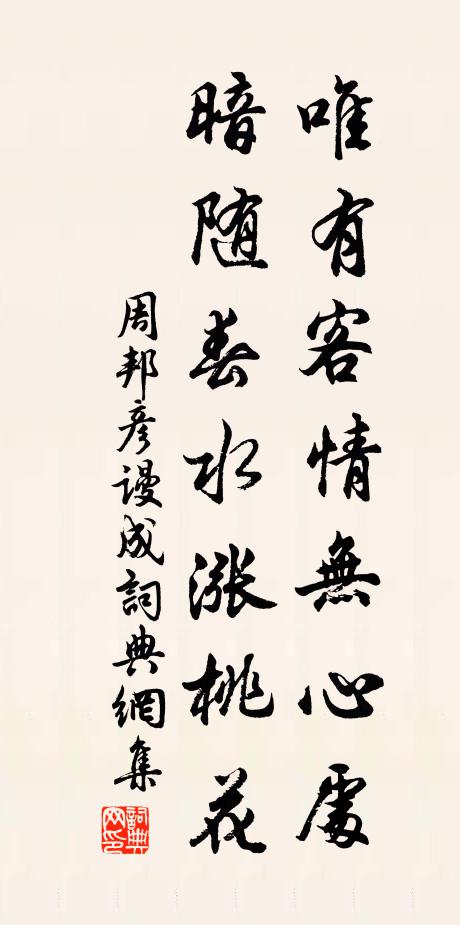 唯有客情無心處
暗随春水漲桃花
周邦彦謾成詞典網集
詞典
网印